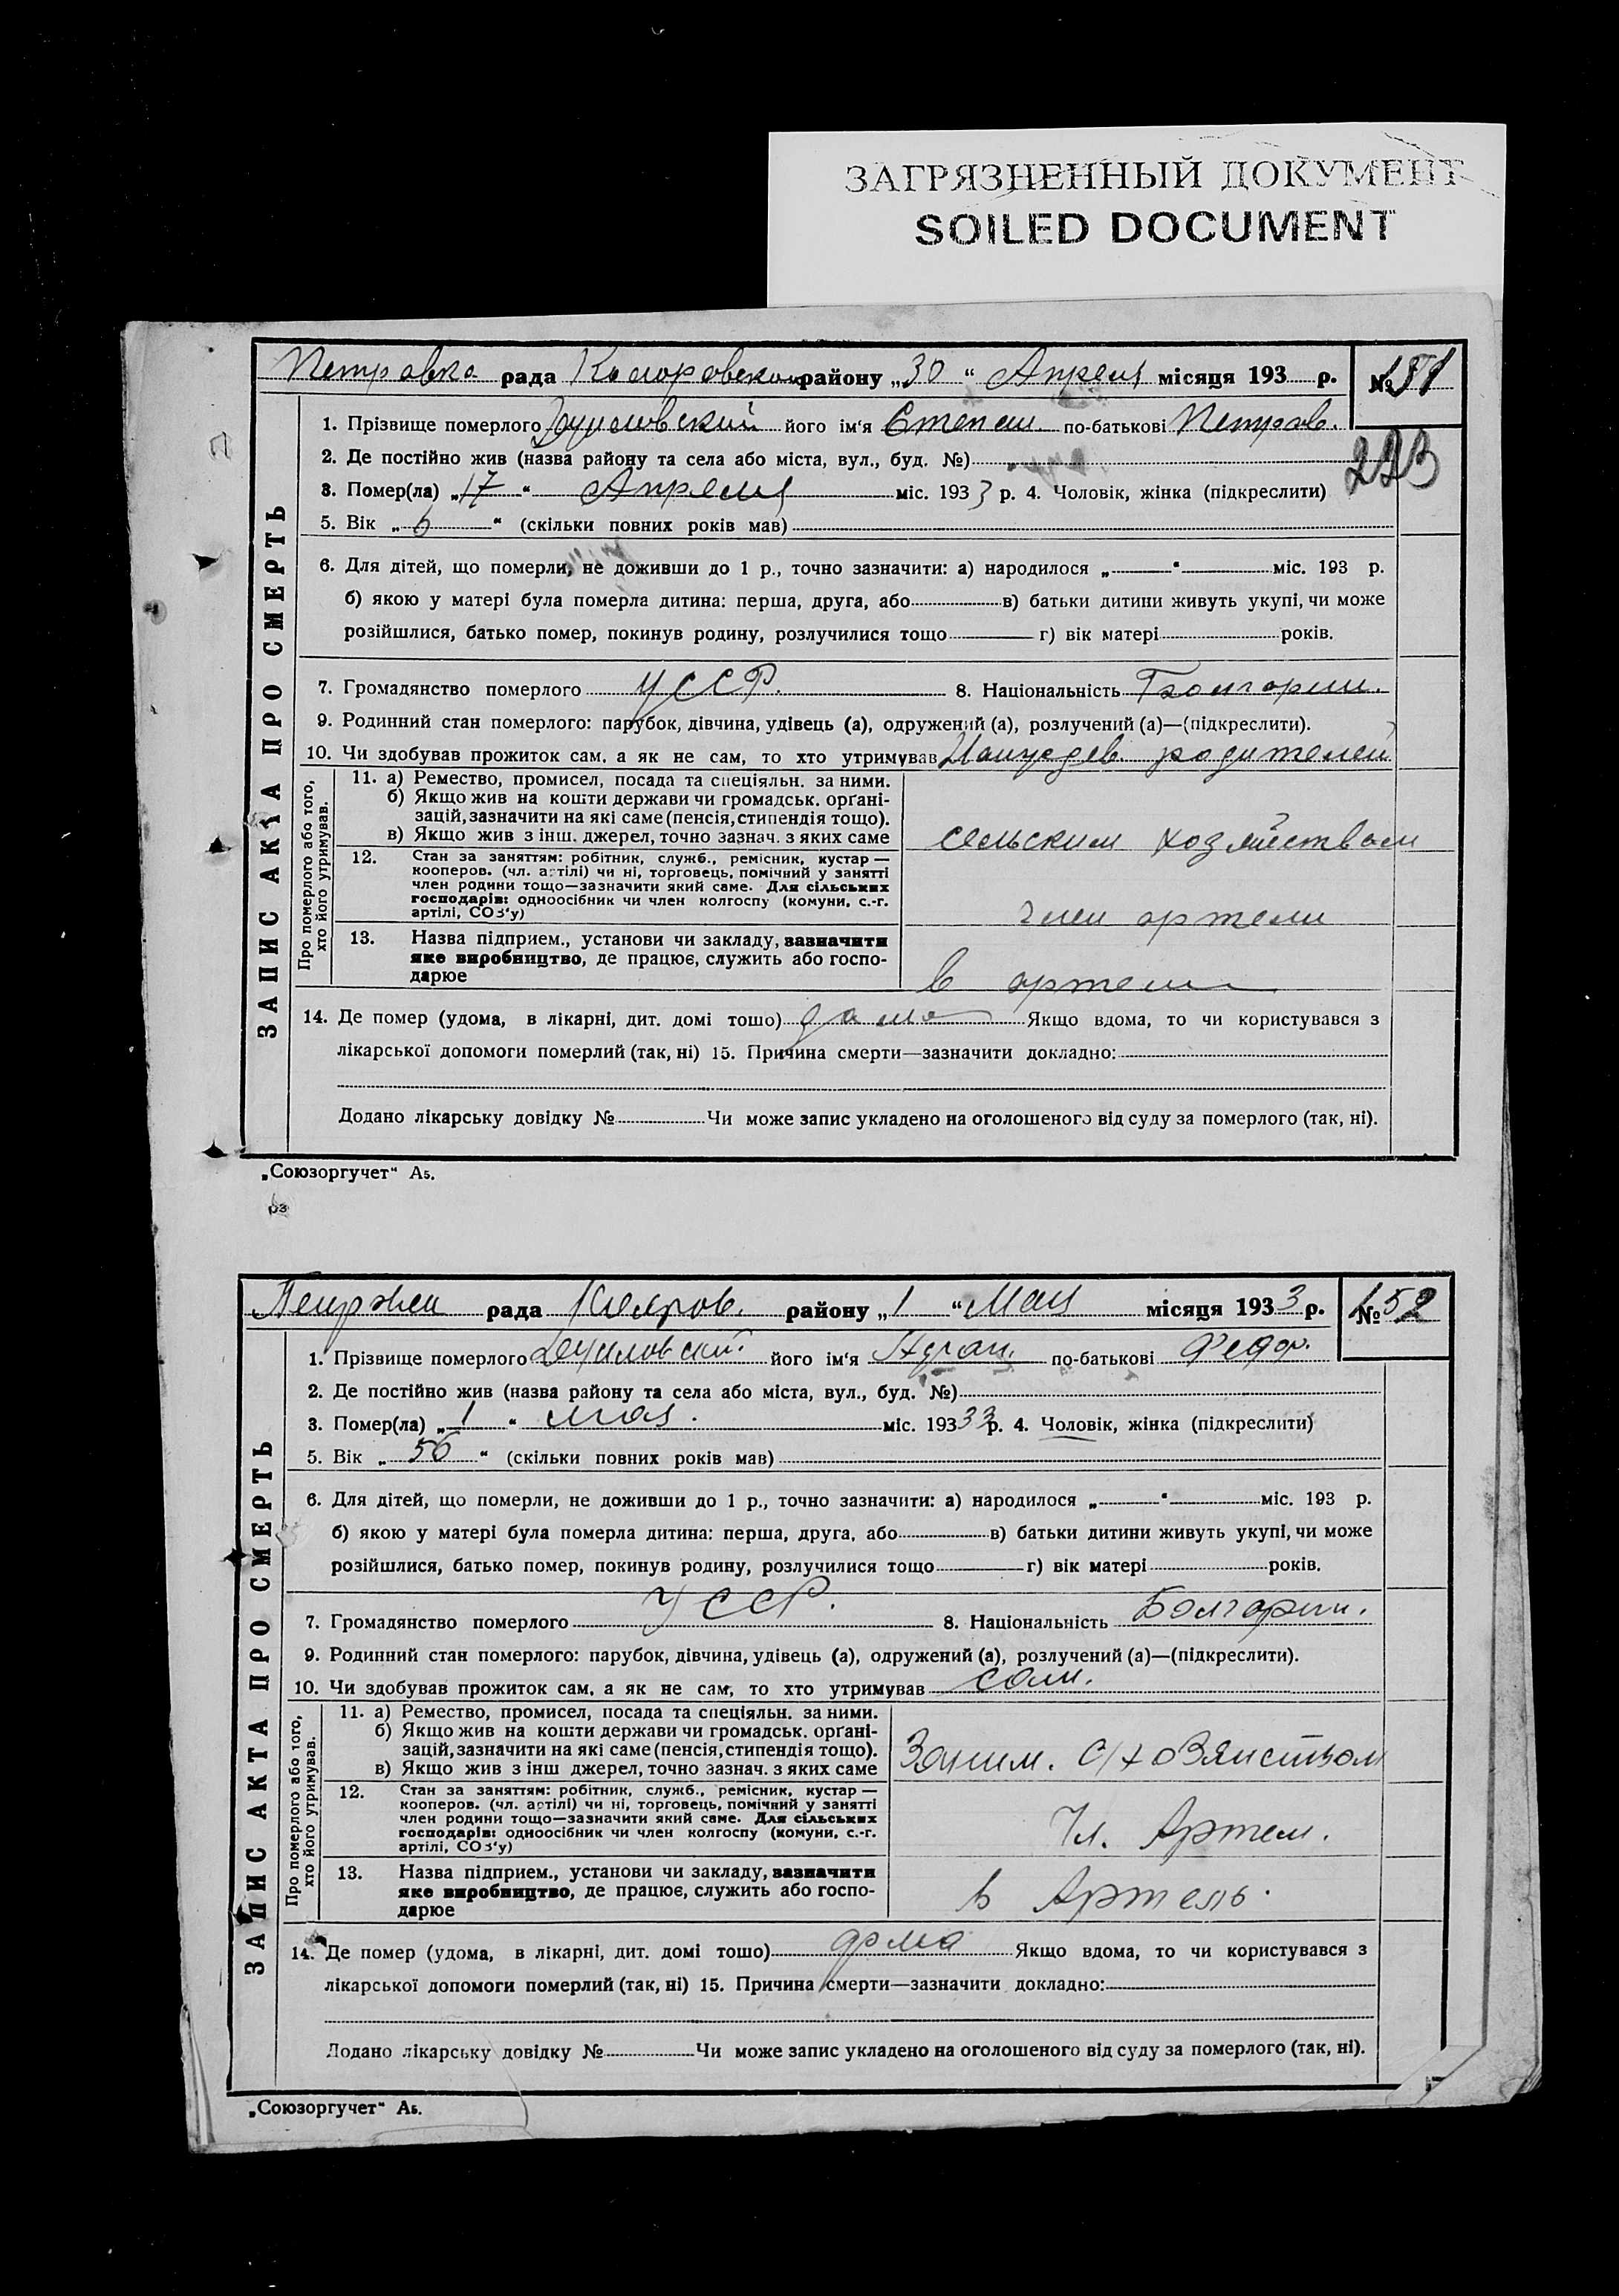 ЗАГРЯЗНЕННЫЙ ДОКУМЕНТ
SOILED DOCUMENT
Петровка рада районy „30“ Апреля місяця 193 р. №
1. Прізвище померлого його ім‘я Степан по-батькові Петров.
223
2. Де постійно жив (назва району та села або міста, вул., буд. №)
3. Помер(ла) „17“ Апреля міс. 1933 р. 4. Чоловік, жінка (підкреслити)
5. Вік „6“ (скільки повних років мав)
ЗАПИС АКТА ПРО СМЕРТЬ
6. Для дітей, що померли, не доживши до 1 р., точно зазначити: а) народилося „ “ міс. 193 р.
б) якою у матері була померла дитина: перша, друга, або в) батьки дитини живуть укупі, чи може
розійшлися, батько помер, покинув родину, розлучилися тощо г) вік матері років.
7. Громадянство померлого УССР. 8. Національність
9. Родинний стан померлого: парубок, дівчина, удівець (а), одружений (а), розлучений (а)—(підкреслити).
10. Чи здобував прожиток сам, а як не сам, то хто утримував родителей
Про померлого або того, хто його утримував.
11. а) Ремество, промисел, посада та спеціяльн. за ними.
б) Якщо жив на кошти держави чи громадськ. орґані-
зацій, зазначити на які саме (пенсія, стипендія тощо).
в) Якщо жив з інш. джерел, точно зазнач. з яких саме
сельским хозяйством
12. Стан за заняттям: робітник, служб., ремісник, кустар —
кооперов. (чл. артілі) чи ні, торговець, помічний у занятті
член родини тощо—зазначити який саме. Для сільських
господарів: одноосібник чи член колгоспу (комуни, с.-г.
артілі, СОЗ‘у)
член артели
13. Назва підприєм., установи чи закладу, зазначити
яке виробництво, де працює, служить або госпо-
дарює
в артели
14. Де помер (удома, в лікарні, дит. домі тощо) дома Якщо вдома, то чи користувався з
лікарської допомоги померлий (так, ні) 15. Причина смерти—зазначити докладно:
Додано лікарську довідку № Чи може запис укладено на оголошеного від суду за померлого (так, ні).
„Союзоргучет“ А5.
рада районy „1“ Мая місяця 1933 р. № 152
1. Прізвище померлого його ім‘я по-батькові Федор.
2. Де постійно жив (назва району та села або міста, вул., буд. №)
3. Помер(ла) „1“ мая. міс. 19333 р. 4. Чоловік, жінка (підкреслити)
5. Вік „56“ (скільки повних років мав)
ЗАПИС АКТА ПРО СМЕРТЬ
6. Для дітей, що померли, не доживши до 1 р., точно зазначити: а) народилося „ “ міс. 193 р.
б) якою у матері була померла дитина: перша, друга, або в) батьки дитини живуть укупі, чи може
розійшлися, батько помер, покинув родину, розлучилися тощо г) вік матері років.
7. Громадянство померлого УССР. 8. Національність Болгарин.
9. Родинний стан померлого: парубок, дівчина, удівець (а), одружений (а), розлучений (а)—(підкреслити).
10. Чи здобував прожиток сам, а як не сам, то хто утримував сам.
Про померлого або того, хто його утримував.
11. а) Ремество, промисел, посада та спеціяльн. за ними.
б) Якщо жив на кошти держави чи громадськ. орґані-
зацій, зазначити на які саме (пенсія, стипендія тощо).
в) Якщо жив з інш джерел, точно зазнач. з яких саме
Заним. с/хозяиством
12. Стан за заняттям: робітник, служб., ремісник, кустар —
кооперов. (чл. артілі) чи ні, торговець, помічний у занятті
член родини тощо—зазначити який саме. Для сільських
господарів: одноосібник чи член колгоспу (комуни, с.-г.
артілі, СОЗ‘у)
Чл. Артел.
13. Назва підприєм., установи чи закладу, зазначити
яке виробництво, де працює, служить або госпо-
дарює
в Артель.
14. Де помер (удома, в лікарні, дит. домі тощо) дома Якщо вдома, то чи користувався з
лікарської допомоги померлий (так, ні) 15. Причина смерти—зазначити докладно:
Додано лікарську довідку № Чи може запис укладено на оголошеного від суду за померлого (так, ні).
„Союзоргучет“ А5.